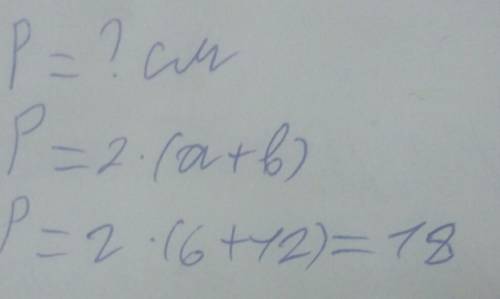 P = ? см
P = 2 · (a + b)
P = 2 · (6 + 12) = 18